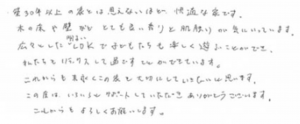 築30年以上の家とは思えないほど 快適な家です。
木の床や壁がとても良い香りと肌触りが気にいっています。
広々とした明るいLDKで子どもたちも楽しく遊ぶことができ、
私たちもリラックスして過ごすことができています。
これからも末永くこの家を大切にしていきたいと思います。
この度は、いろいろサポートしていただき ありがとうございます。
これからも よろしくお願いします。